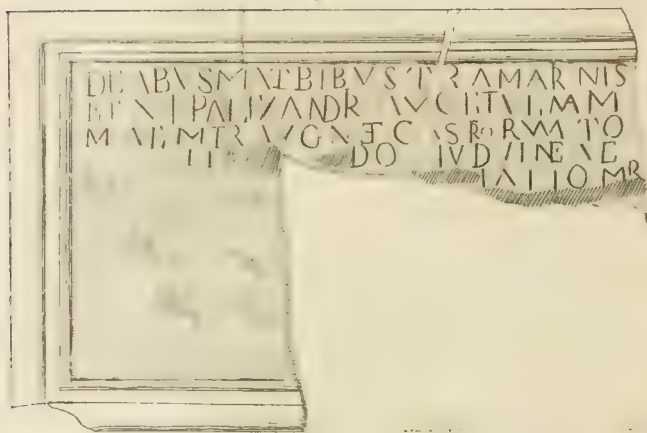 DEABVSMATRIBVS TRAMARNIS
ET N I PALEXANDR AVG ET IVL MAM
M AE MTR AVG N ET C ASRORVM TO
DO IVD VINE AE
LATIO MR